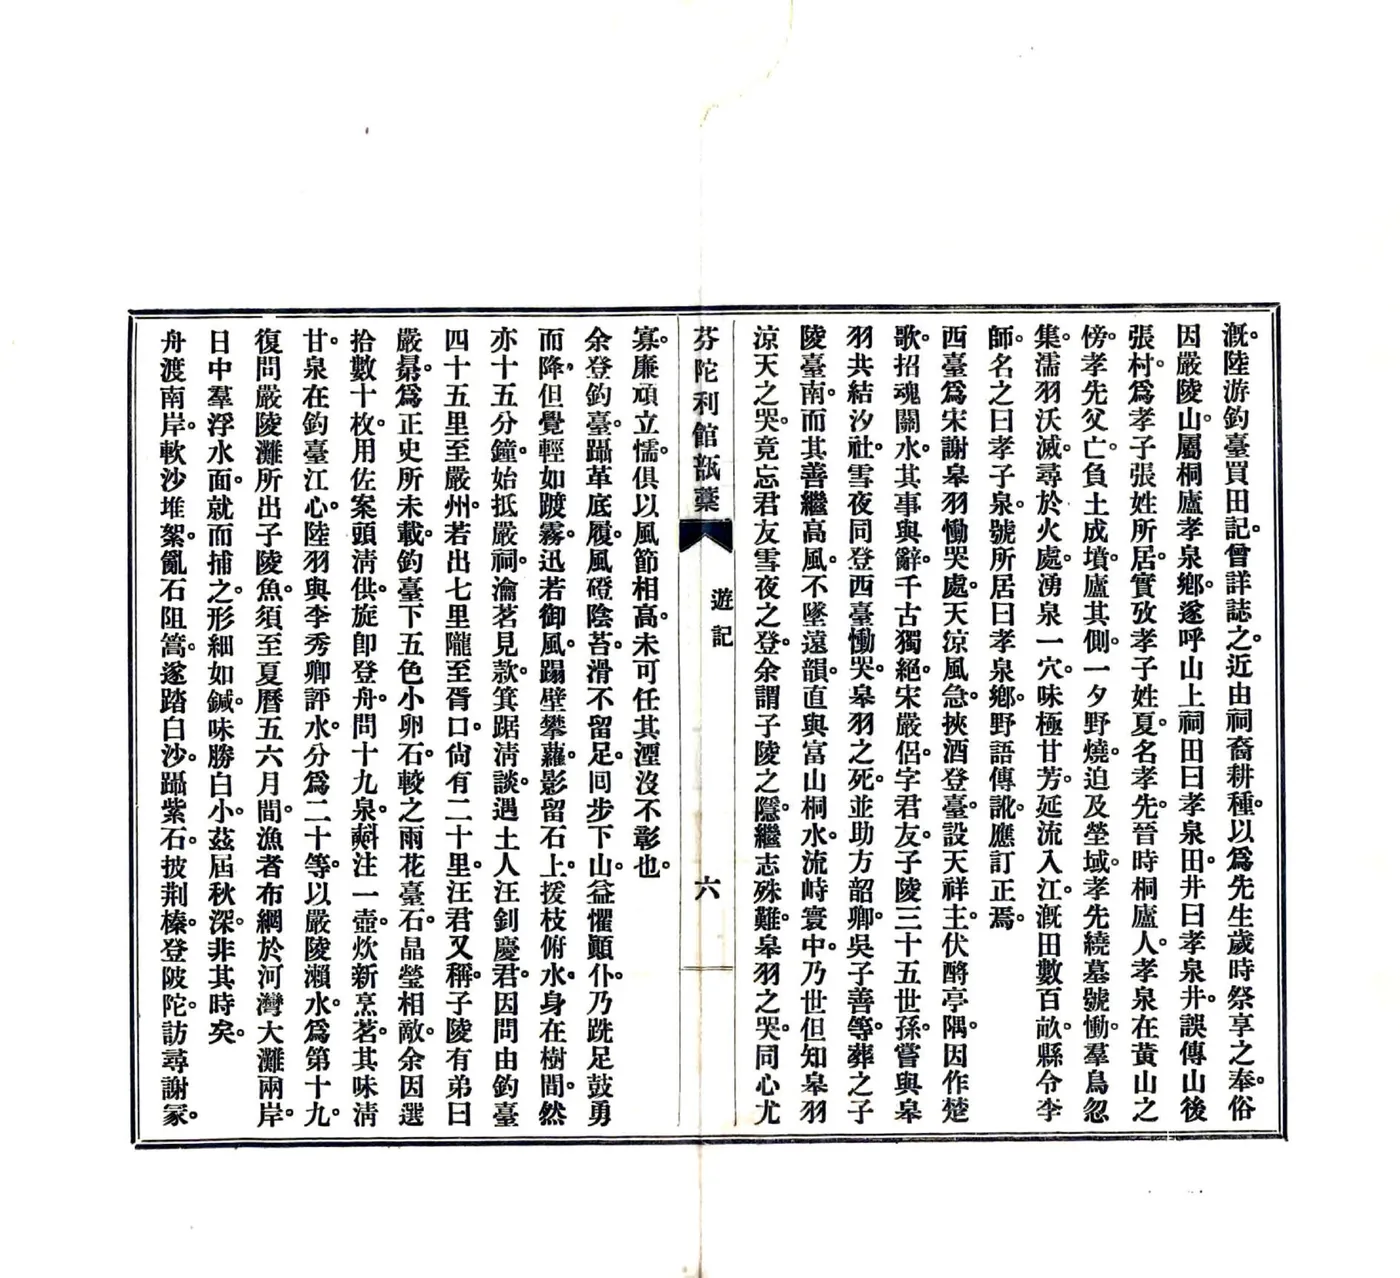 漑。陸游釣臺買田記。曾詳誌之。近由祠裔耕種。以爲先生歲時祭享之奉。俗
因嚴陵山。屬桐廬孝泉鄕。遂呼山上祠田曰孝泉田。井曰孝泉井。誤傳山後
張村。爲孝子張姓所居。實攷孝子姓夏。名孝先。晉時桐廬人。孝泉在黃山之
傍。孝先父亡。負土成墳。廬其側。一夕野燒。迫及塋域。孝先繞墓號慟。羣鳥忽
集。濡羽沃滅。尋於火處。湧泉一穴。味極甘芳。延流入江。漑田數百畝。縣令李
師。名之曰孝子泉。號所居曰孝泉鄕。野語傳訛。應訂正焉。
西臺爲宋謝皋羽慟哭處。天涼風急。挾酒登臺。設天祥主。伏酹亭隅。因作楚
歌。招魂關水。其事與辭。千古獨絕。宋嚴侶。字君友。子陵三十五世孫。嘗與皋
羽共結汐社。雪夜同登西臺慟哭。皋羽之死。並助方韶卿。吳子善等。葬之子
陵臺南。而其善繼高風。不墜遠韻。直與富山桐水。流峙寰中。乃世但知皋羽
涼天之哭。竟忘君友雪夜之登。余謂子陵之隱。繼志殊難。皋羽之哭。同心尤
芬陀利館瓿藁
遊記
六
寡。廉頑立懦。俱以風節相高。未可任其湮沒不彰也。
余登釣臺。躡革底履。風磴陰苔。滑不留足。同步下山。益懼顚仆。乃跣足鼓勇
而降。但覺輕如踱霧。迅若御風。蹋壁攀蘿。影留石上。援枝俯水。身在樹間。然
亦十五分鐘。始抵嚴祠。瀹茗見款。箕踞淸談。遇土人汪釗慶君。因問由釣臺
四十五里至嚴州。若出七里隴至胥口。尙有二十里。汪君又稱。子陵有弟曰
嚴羣。爲正史所未載。釣臺下五色小卵石。較之雨花臺石。晶瑩相敵。余因選
拾數十枚。用佐案頭淸供。旋卽登舟。問十九泉。㪺注一壺。炊新烹茗。其味淸
甘。泉在釣臺江心。陸羽與李秀卿評水。分爲二十等。以嚴陵瀨水。爲第十九。
復問嚴陵灘所出子陵魚。須至夏曆五六月間。漁者布網於河灣大灘兩岸。
日中羣浮水面。就而捕之。形細如鍼。味勝白小。茲屆秋深。非其時矣。
舟渡南岸。軟沙堆絮。亂石阻篙。遂踏白沙。躡紫石。披荆榛。登陂陀。訪尋謝冢。